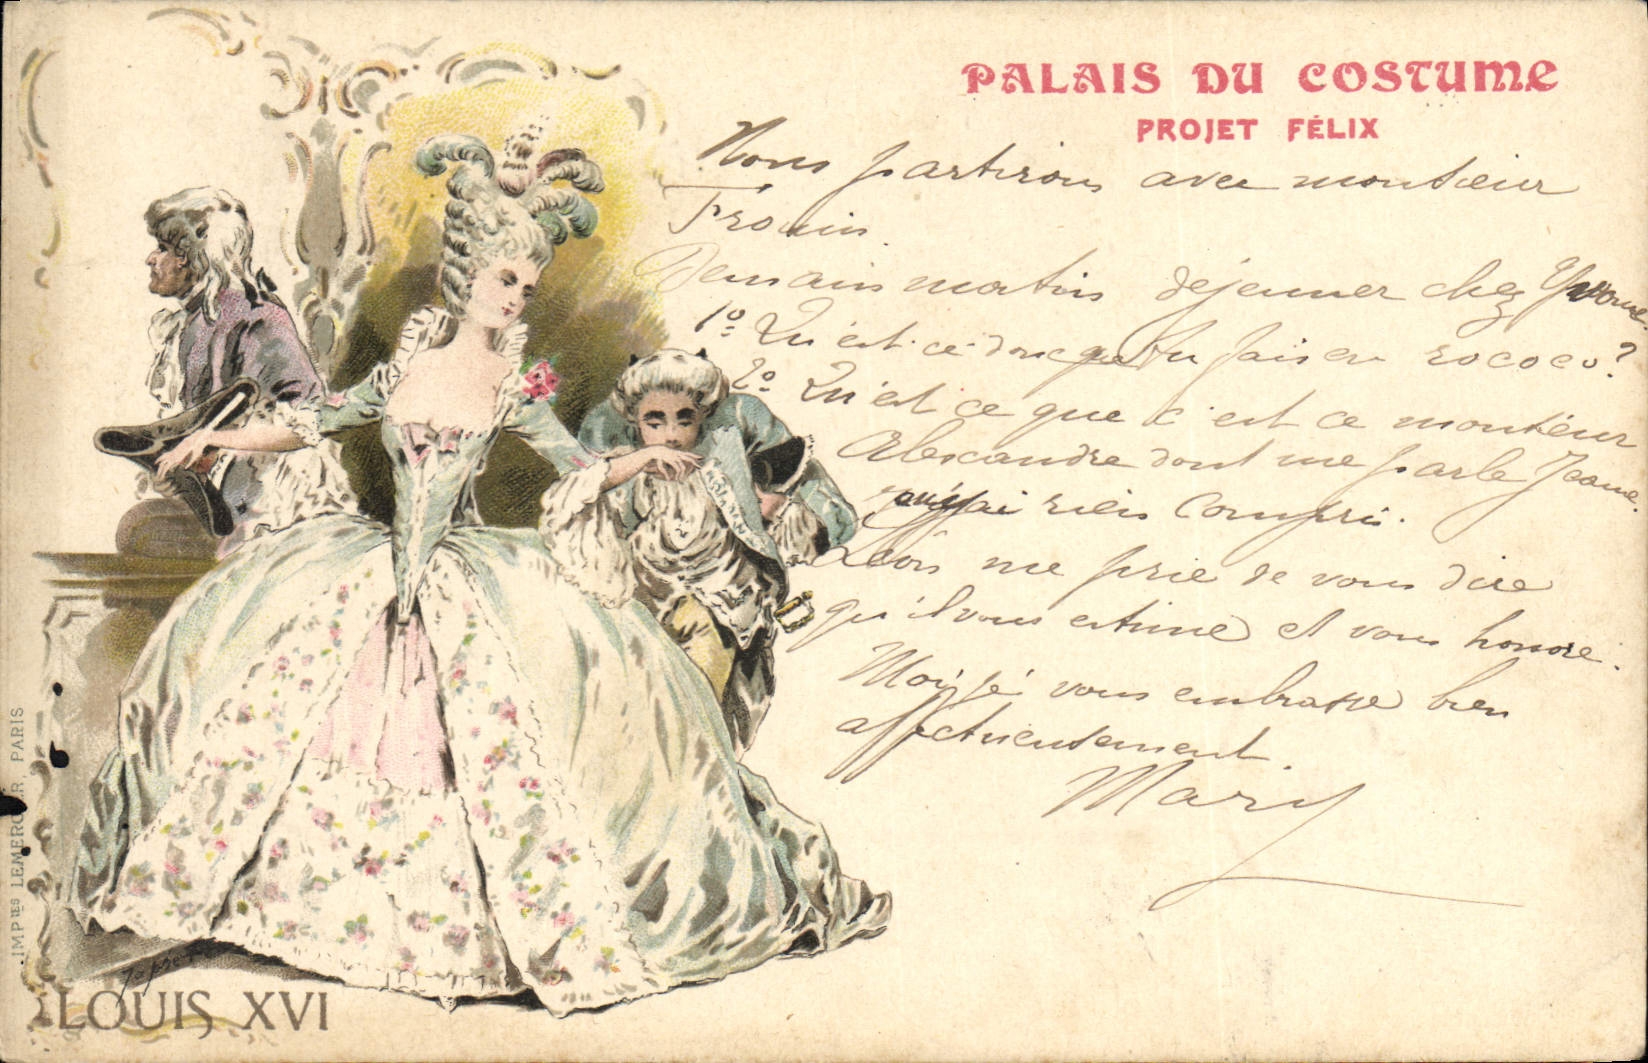 PALAIS DU COSTUME
PROJET FÉLIX
Nous partirons avec monsieur
Frouin.
Demain matin déjeuner chez Yvonne
1º Qu'est-ce donc que tu fais en rococo?
2º Qu'est ce que c'est ce monsieur
Alexandre dont me parle Jeanne.
j'ai rien compris.
Léon me prie de vous dire
qu'il vous estime et vous honore.
Moi je vous embrasse bien
affectueusement.
Mary
IMP^IES LEMERCIER, PARIS
LOUIS XVI